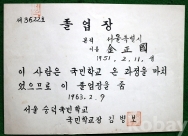 제3622호
졸업장
본적 서울특별시
이름 金正國
1951. 2. 11. 생
이 사람은 국민학교 온 과정을 마치
었으므로 이 졸업장을 줌
1963. 2. 9
서울 숭덕국민학교
국민학교장 김병보
Kobay